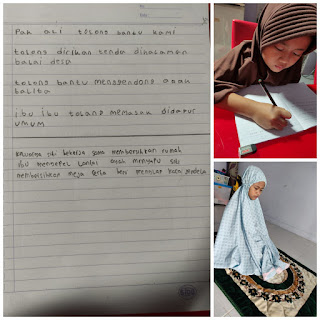 Pak Ali tolong bantu kami
tolong dirikan tenda dihalaman
balai desa
tolong bantu menggendong anak
balita
ibu ibu tolong memasak didapur
umum
keluarga siti bekerja sama membersihkan rumah
ibu mengepel lantai ayah menyapu siti
membersihkan meja serta beni kaca jendela